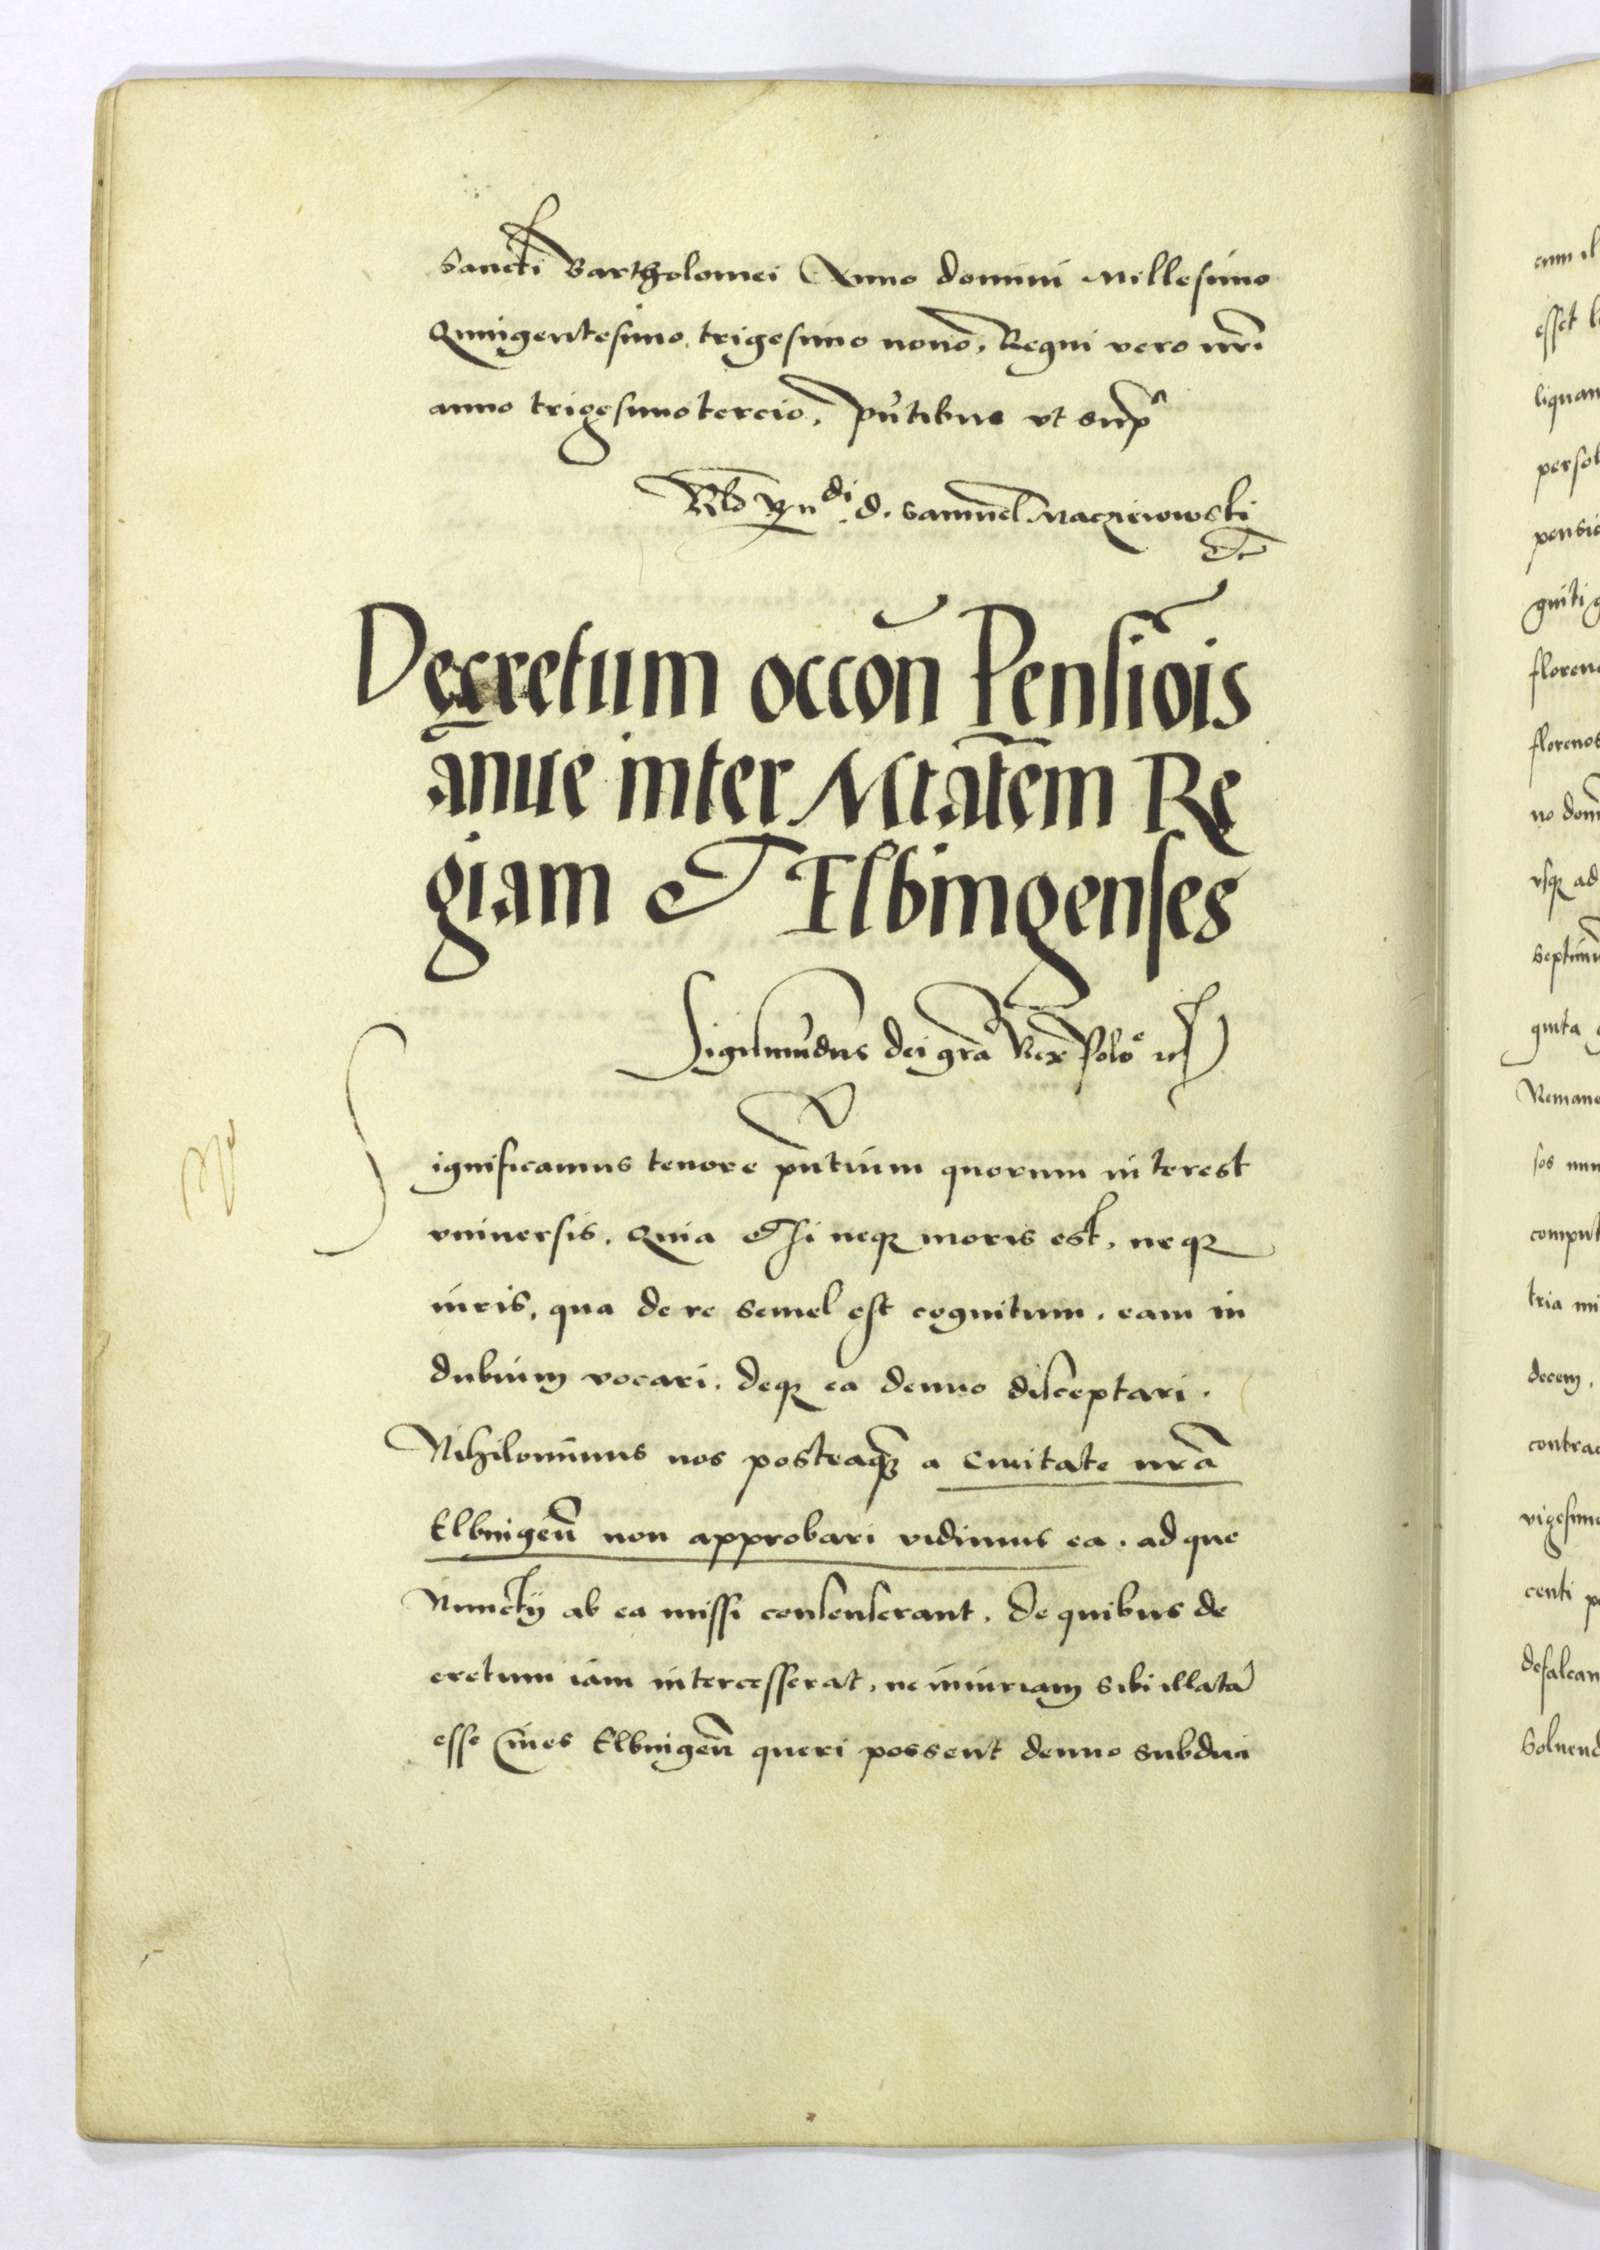 Sancti Bartholomei Anno domini Millesimo
Quingentesimo trigesimo nono, Regni vero nr̃i
anno trigesimotercio, pñtibus vt sup^a
R^do d. Samuel Macziewowski
etc
Decretum occoñ Pensiõis
ãnue inter Mtatem̃ Re
giam et Elbingenses
Sigismũdus dei grã Rex Polo^e etc
Significamus tenore pñtium quorum interest
vniuersis, Quia Etsi neqȝ moris est, neqȝ
iuris, qua de re semel est cognitum, eam in
dubium vocari, deqȝ ea denuo disceptari.
Nihilominus nos posteaqȝ̃ a Ciuitate nrã
Elbingeñ non approbari vidimus ea, ad que
Nunctij ab ea missi consenserant, de quibus de
cretum iam intercesserat, ne iniuriam sibi illatã
esse Ciues Elbingeñ queri possent denuo subduci
cum il
esset l
liquan
persol
pensio
guiti g
floren
florenos
no dom̃
vsqȝ ad
septim
gnita
Remane
sos num
comput
tria mi
decem,
contrac
vigesimo
centi p
defalcan
Soluend